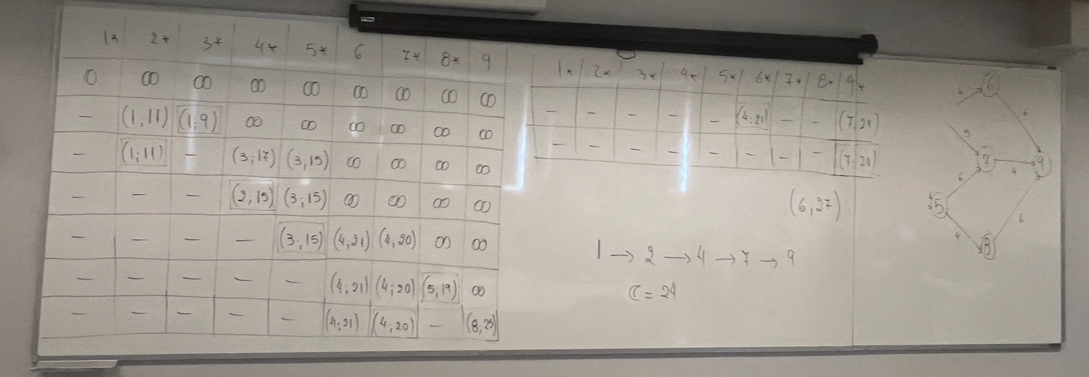 1* 2* 3* 4* 5* 6 7* 8* 9
0 ∞ ∞ ∞ ∞ ∞ ∞ ∞ ∞
– (1,11) (1;9) ∞ ∞ ∞ ∞ ∞ ∞
– (1,11) – (3;17) (3,15) ∞ ∞ ∞ ∞
– – – (2,15) (3;15) ∞ ∞ ∞ ∞
– – – – (3,15) (4,21) (4,20) ∞ ∞
– – – – – (4;21) (4;20) (5,19) ∞
– – – – – (4;21) (4,20) – (8,25)
1* 2* 3* 4* 5* 6* 7* 8* 9*
– – – – – (4;21) – – (7,24)
– – – – – – – – (7;24)
(6,27)
1 → 2 → 4 → 7 → 9
C = 24
6
6
5
7
9
6
4
5
4
6
8